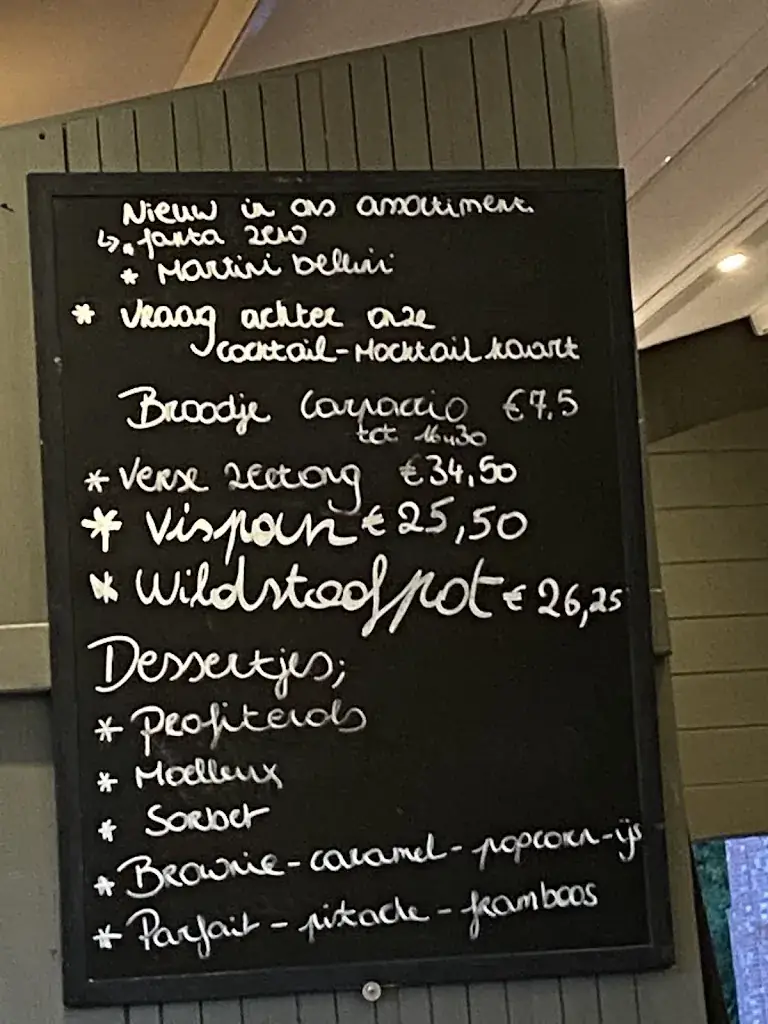 Nieuw in ons assortiment.
↳ * fanta zero
* Martini bellini
* Vraag achter onze
cocktail-Mocktail kaart
Broodje Carpaccio €7,5
tot 16u30
* Verse zeetong €34,50
* Vispan € 25,50
* Wildstoofpot € 26,25
Dessertjes;
* Profiterols
* Moelleux
* Sorbet
* Brownie-caramel-popcorn-ijs
* Parfait - pistache - framboos